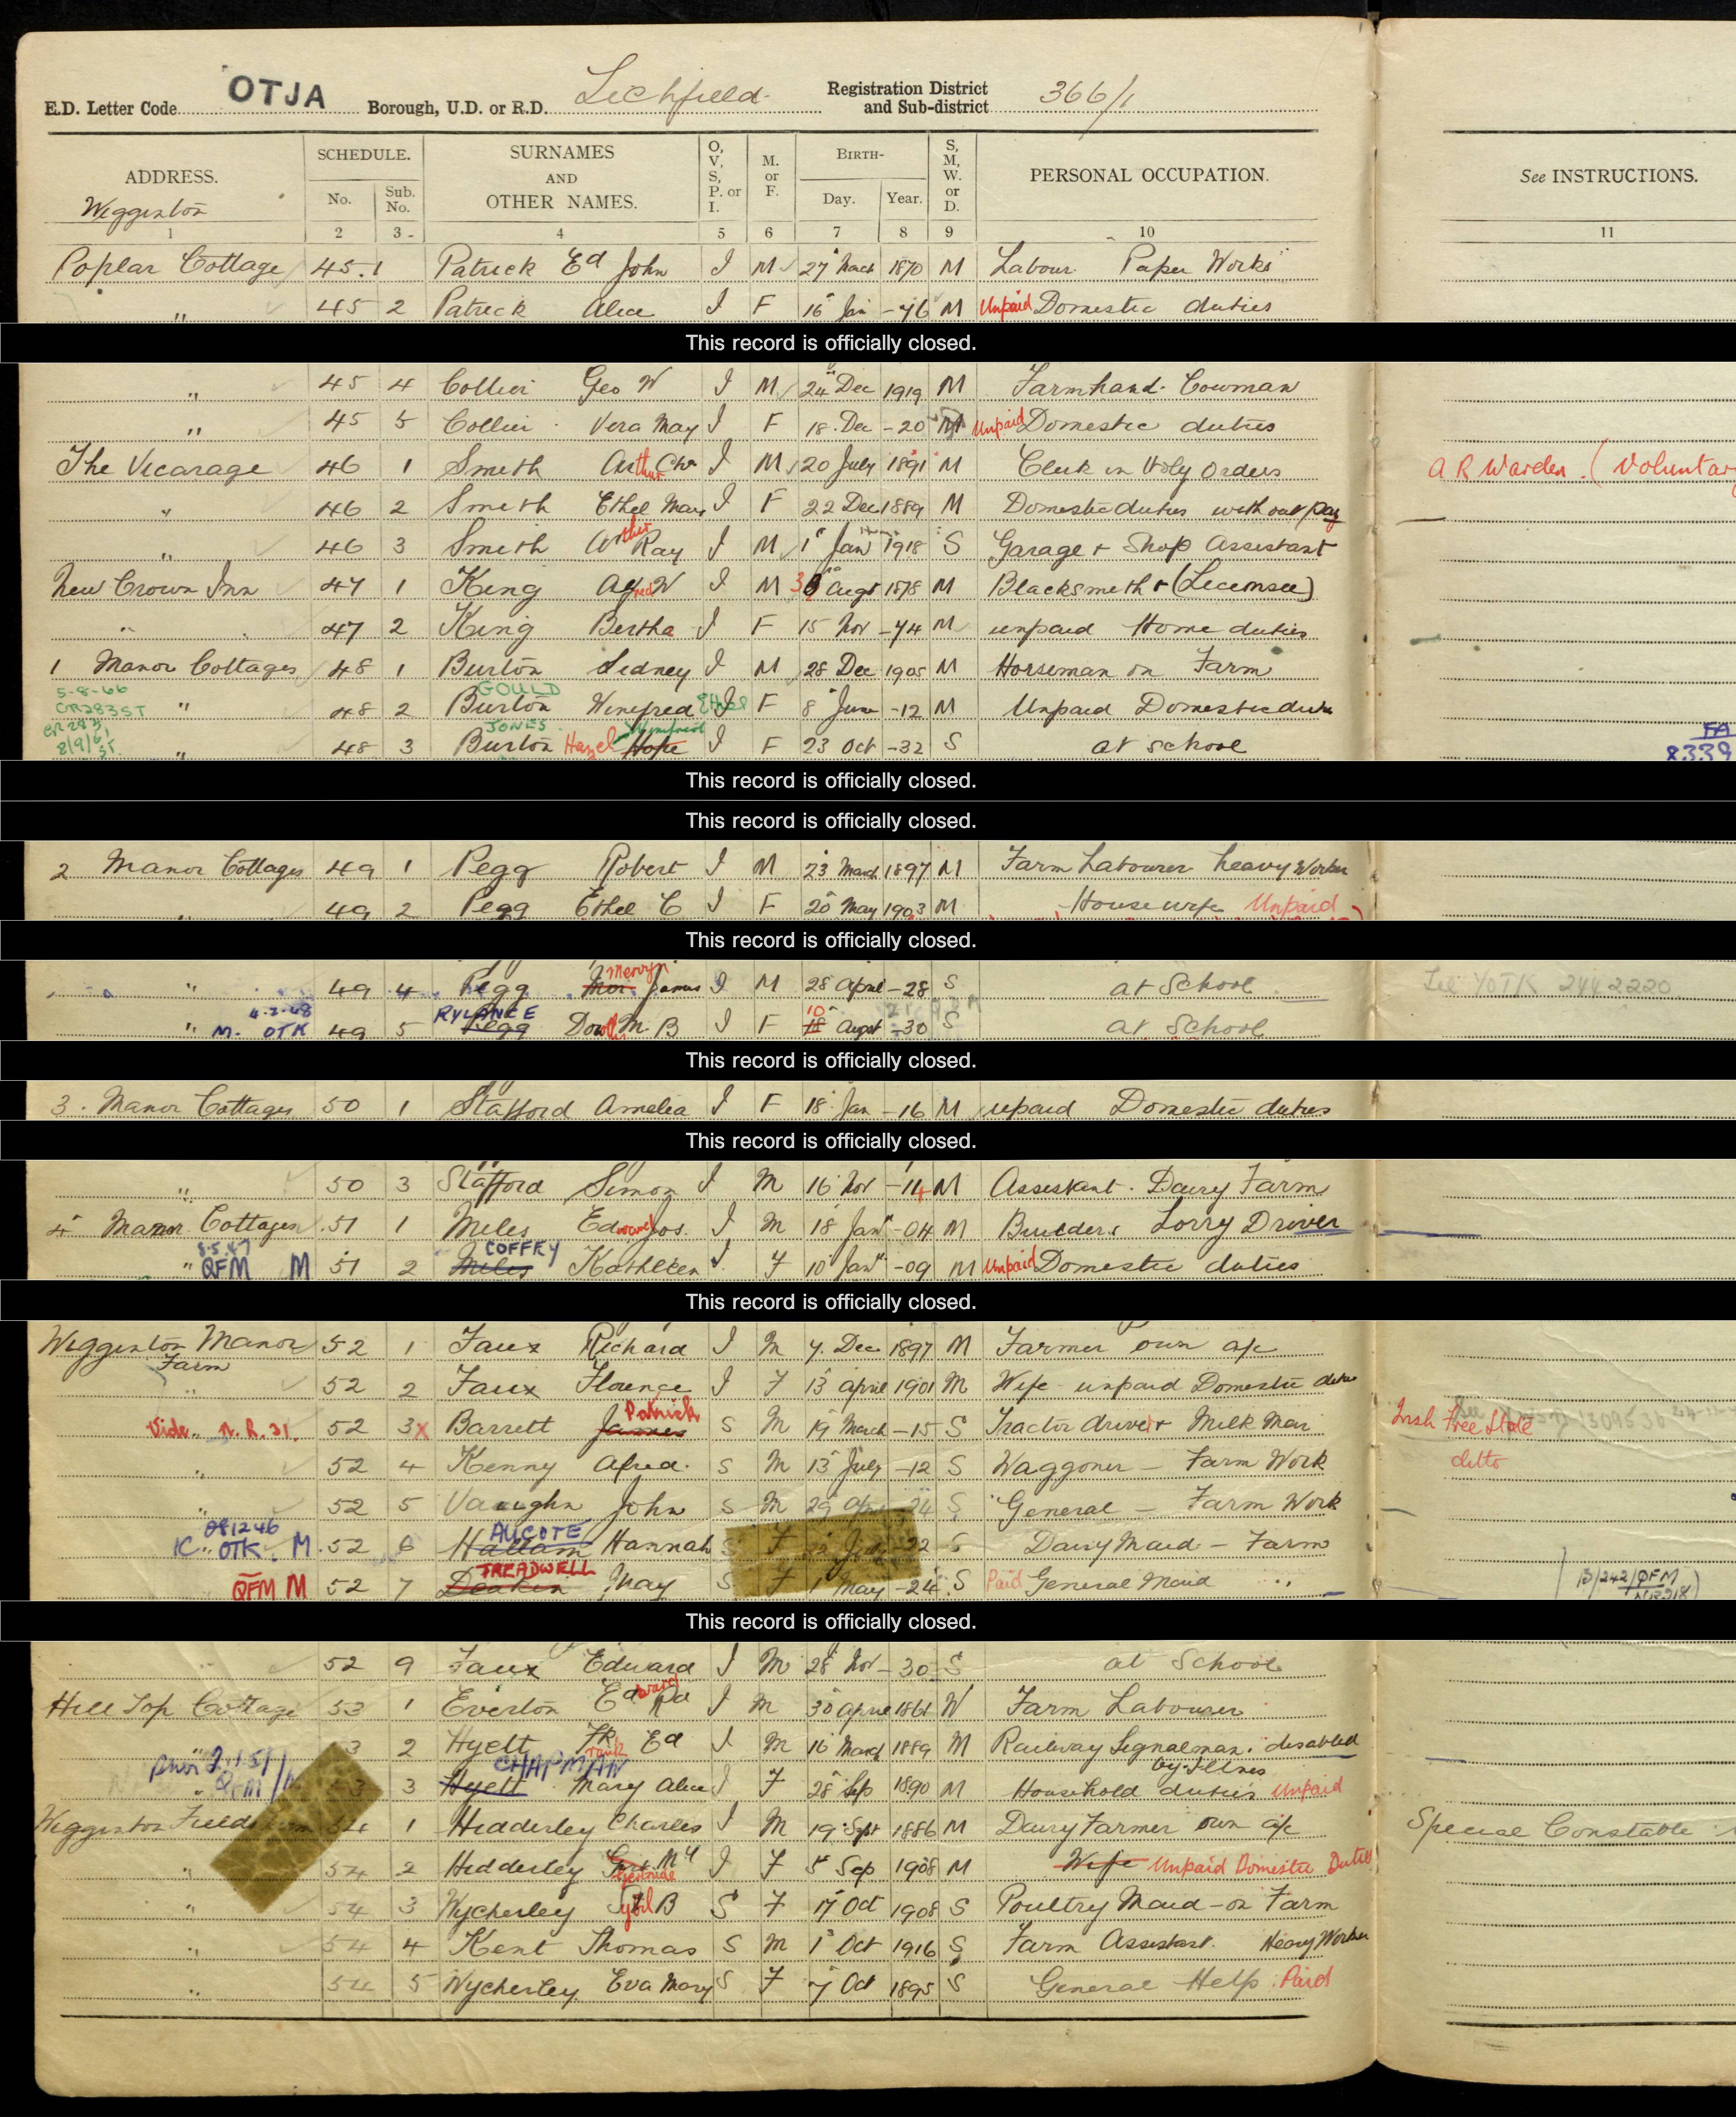 E.D. Letter Code OTJA Borough, U.D. or R.D. Lichfield Registration District and Sub-district 366/1
ADDRESS. SCHEDULE. No. Sub. No. SURNAMES AND OTHER NAMES. O, V, S, P. or I. M. or F. BIRTH- Day. Year. S, M, W. or D. PERSONAL OCCUPATION. See INSTRUCTIONS.
Wigginton
1 2 3 4 5 6 7 8 9 10 11
Poplar Cottage 45.1 Patrick Ed John I M 27 March 1870 M Labour Paper Works
" 45 2 Patrick Alice I F 16 Jan -76 M Unpaid Domestic duties
This record is officially closed.
" 45 4 Collier Geo W I M 24 Dec 1919 M Farmhand. Cowman
" 45 5 Collier Vera May I F 18 Dec -20 M Unpaid Domestic duties
The Vicarage 46 1 Smith Arthur Chs I M 20 July 1891 M Clerk in Holy Orders A R Warden. (Voluntar
" 46 2 Smith Ethel Mary I F 22 Dec 1889 M Domestic duties without pay
" 46 3 Smith Arther Ray I M 1 Jan 1918 S Garage + Shop Assistant
New Crown Inn 47 1 King Alfred W I M 30 Augt 1878 M Blacksmith + (Licensee)
" 47 2 King Bertha I F 15 Nov -74 M unpaid Home duties
1 Manor Cottages 48 1 Burton Sidney I M 28 Dec 1905 M Horseman on Farm
5-8-66 CR283ST GOULD
" 48 2 Burton Winifred Ethel I F 8 June -12 M Unpaid Domestic duties
CR283 8/9/61 ST. JONES Winifred FA
" 48 3 Burton Hazel Hope I F 23 Oct -32 S at school 8339
This record is officially closed.
This record is officially closed.
2 Manor Cottages 49 1 Pegg Robert I M 23 March 1897 M Farm Labourer heavy Worker
" 49 2 Pegg Ethel C I F 20 May 1903 M Housewife Unpaid
This record is officially closed.
" 49 4 Pegg Mervyn James I M 28 April -28 S at School See YOTK 2442220
4-2-48 RYLANCE 10
" M. OTK 49 5 Pegg M B I F 18 Augst -30 S at School
This record is officially closed.
3. Manor Cottages 50 1 Stafford Amelia I F 18 Jan -16 M upaid Domestic duties
This record is officially closed.
" 50 3 Stafford Simon I M 16 Nov -14 M Assistant. Dairy Farm
4 Manor Cottages 51 1 Miles Edward Jos. I M 18 Jan -04 M Builders Lorry Driver
8.5.47 COFFEY
" QFM M 51 2 Miles Kathleen I F 10 Jan -09 M Unpaid Domestic duties
This record is officially closed.
Wigginton Manor Farm 52 1 Faux Richard I M 7 Dec 1897 M Farmer own a/c
" 52 2 Faux Florence I F 13 April 1901 M Wife unpaid Domestic duties
Vide N.R.31. 52 3 X Barrett James Patrick S M 19 March -15 S Tractor driver + Milk Man Irish Free State
" 52 4 Kenny Alfred. S M 13 July -12 S Waggoner - Farm Work ditto
" 52 5 Vaughn John S M 29 Apr -24 S General - Farm Work
081246 AUCOTE
IC OTK. M. 52 6 Hallam Hannah S F 22 -22 S Dairy Maid - Farm
TREADWELL
QFM M 52 7 Deakin May S F 1 May -24 S Paid General Maid " B/242/QFM NR318)
This record is officially closed.
" 52 9 Faux Edward I M 28 Nov -30 S at School
Hill Top Cottage 53 1 Everton Edward Rd I M 30 April 1861 W Farm Labourer
" 53 2 Hyett Frank Ed I M 16 March 1889 M Railway Signalman. disabled by Illnes
2.1.51 QFM CHAPMAN
53 3 Hyett Mary Alice I F 28 Sep 1890 M Household duties Unpaid
Wigginton Fields Farm 54 1 Hidderley Charles I M 19 Sept 1886 M Dairy Farmer own a/c Special Constable
" 54 2 Hidderley Gertrude My I F 5 Sep 1908 M Wife Unpaid Domestic Duties
" 54 3 Wycherley Sybil B S F 17 Oct 1908 S Poultry Maid - on Farm
" 54 4 Kent Thomas S M 1 Oct 1916 S Farm Assistant. Heavy Worker
" 54 5 Wycherley Eva Mary S F 7 Oct 1895 S General Help. Paid